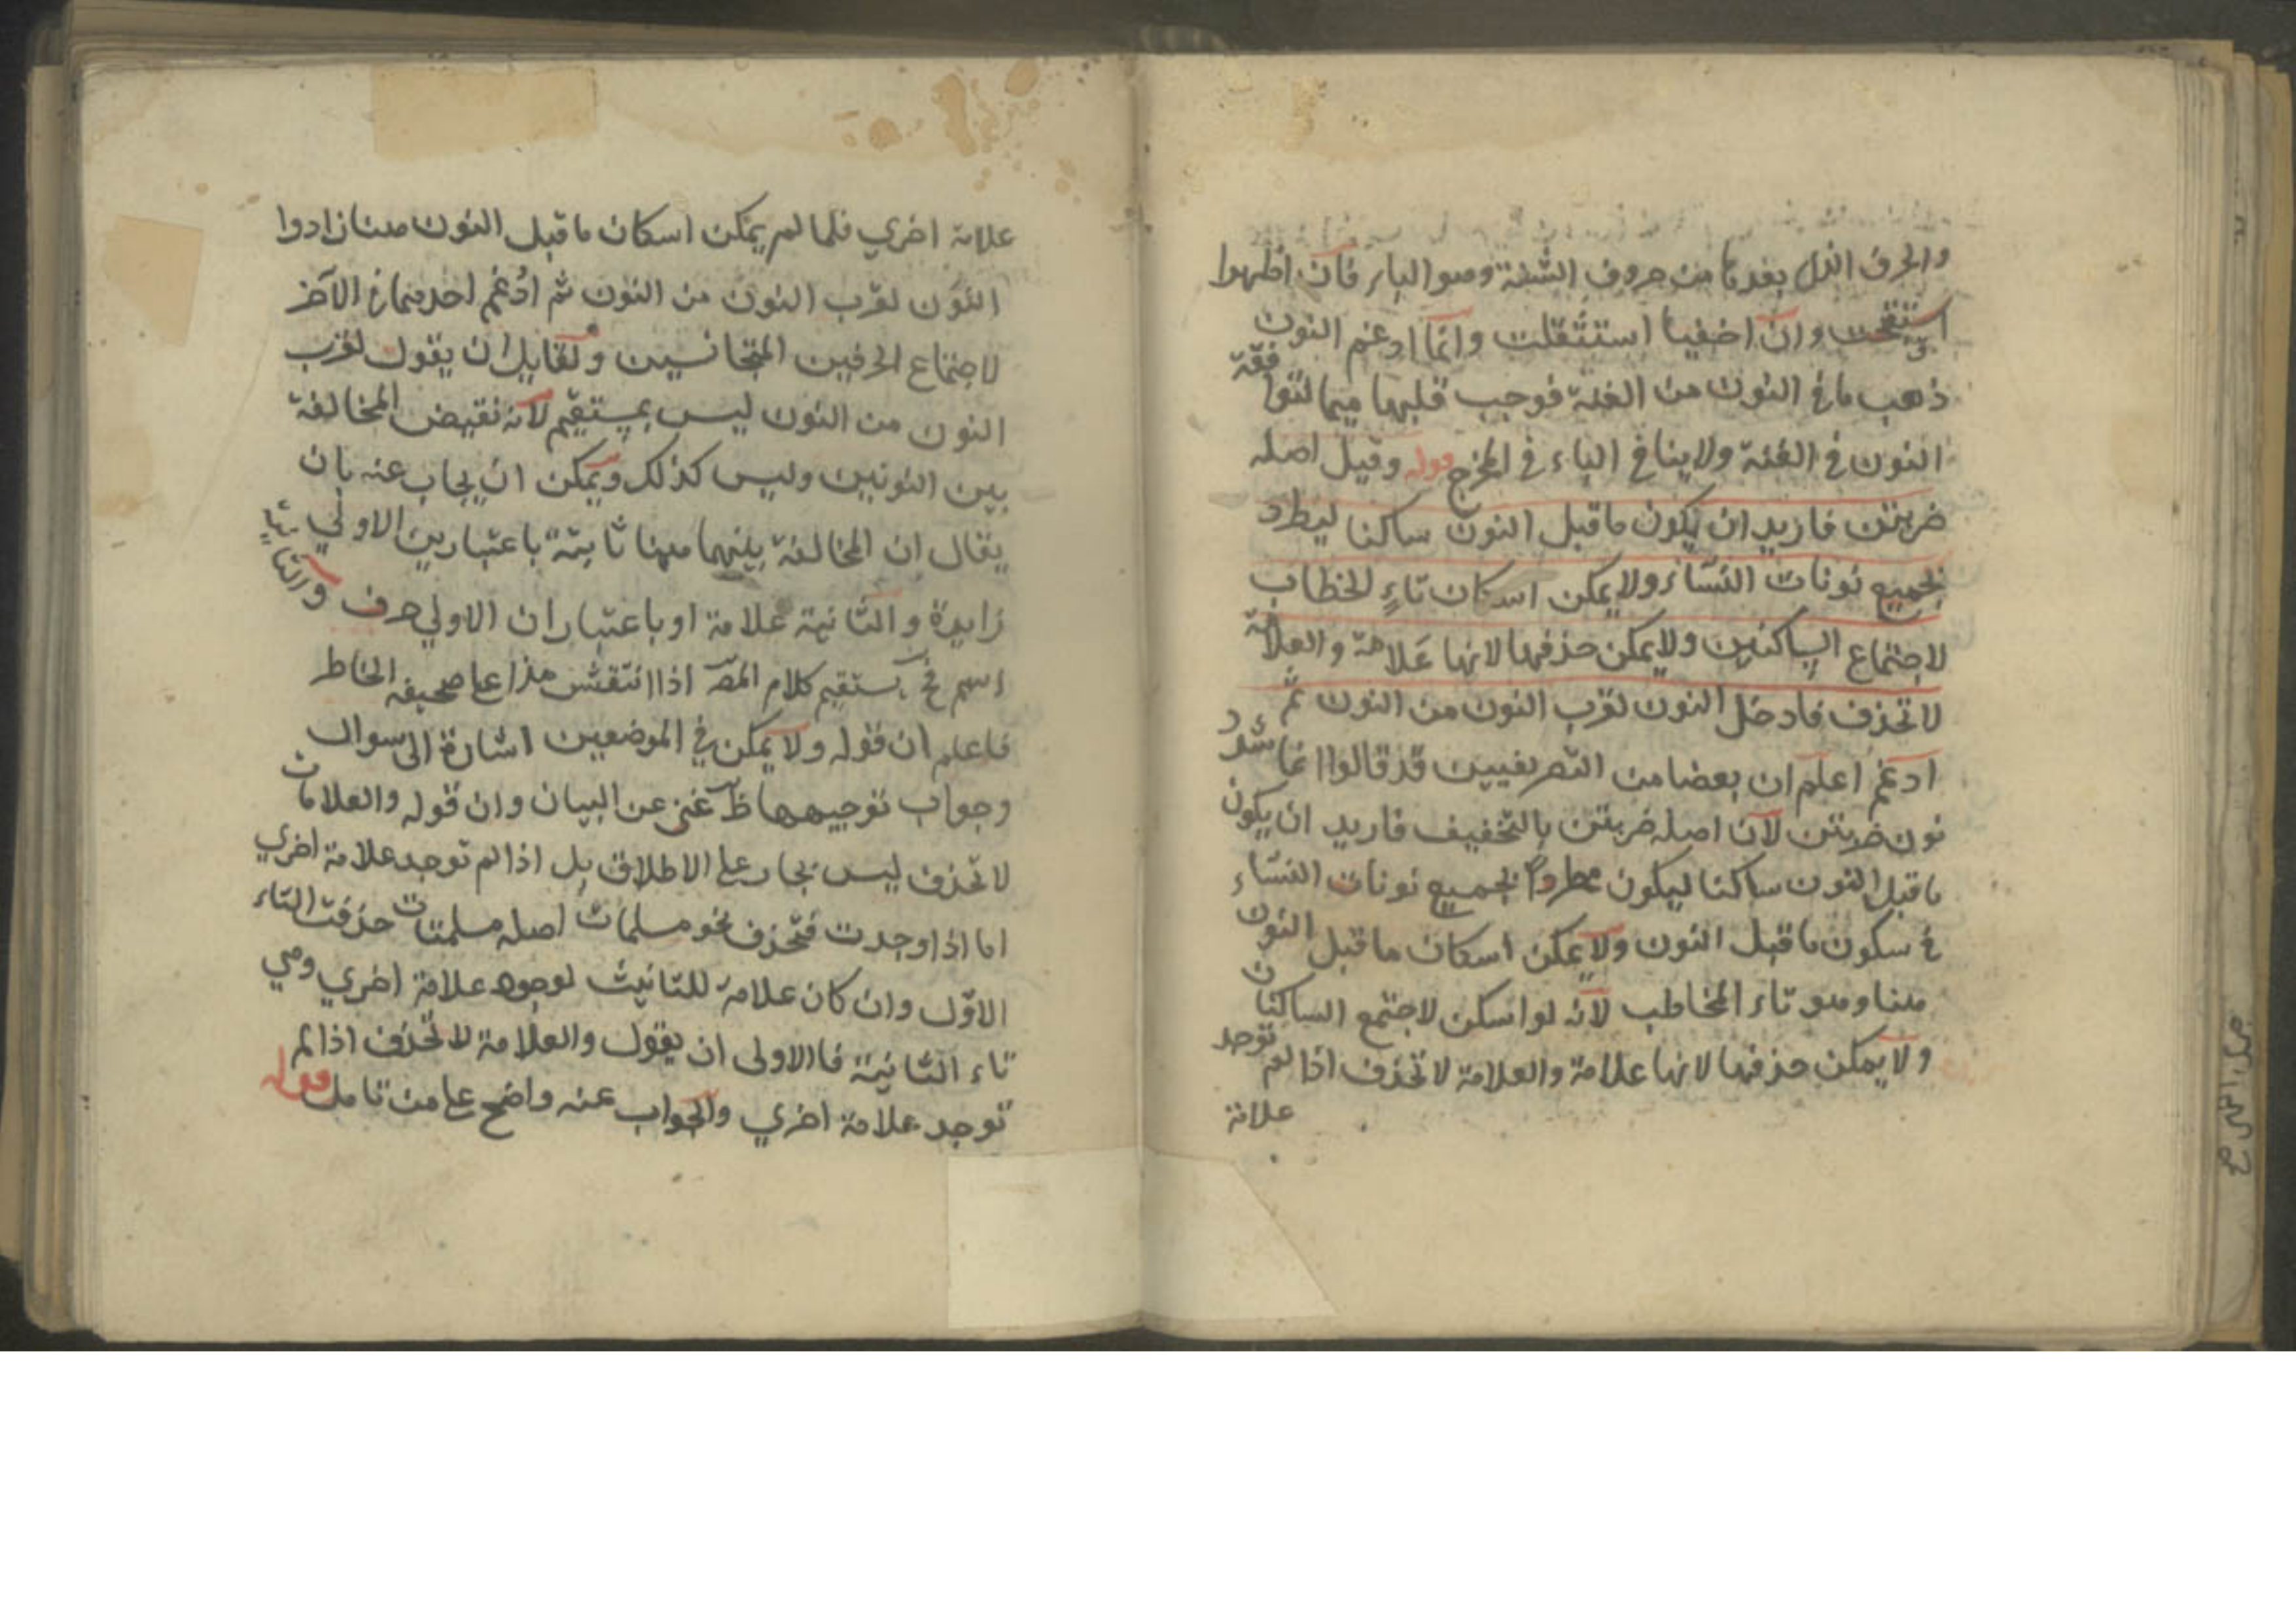 والحرف الذي بعدها من حروف الشفة وهو الباء فان اظهروا
استقبحت وان اخفيا استثقلت وانما ادغم النون
ذهب ما في النون من الغنة فوجب قلبها ميما لتوافقة
النون في الغنة ولا ينافي الباء في المخرج قوله وقيل اصله
ضربتن فاريد ان يكون ما قبل النون ساكنا ليطرد
لجميع نونات النساء ولا يمكن اسكان تاء الخطاب
لاجتماع الساكنين ولا يمكن حذفها لانها علامة والعلامة
لا تحذف فادخل النون لقرب النون من النون ثم
ادغم اعلم ان بعضا من التصريفيين قد قالوا انما شدد
نون ضربتن لان اصله ضربتن بالتخفيف فاريد ان يكون
ما قبل النون ساكنا ليكون مطردا لجميع نونات النساء
في سكون ما قبل النون ولا يمكن اسكان ما قبل النون
هنا وهو تاء المخاطب لانه لو اسكن لاجتمع الساكنان
ولا يمكن حذفها لانها علامة والعلامة لا تحذف اذا لم توجد
علامة
علامة اخري فلما لم يمكن اسكان ما قبل النون هنا زادوا
النون لقرب النون من النون ثم ادغم احدهما في الآخر
لاجتماع الحرفين المتجانسين ولقايل ان يقول لقرب
النون من النون ليس بمستقيم لانه نقيض المخالفة
بين النونين وليس كذلك ويمكن ان يجاب عنه بان
يقال ان المخالفة بينهما ههنا ثابتة باعتبارين الاولي
زايدة والثانية علامة او باعتبار ان الاولي حرف والثانية
اسم فح يستقيم كلام المص اذا انتقش هذا علي صحيفة الخاطر
فاعلم ان قوله ولا يمكن في الموضعين اشارة الى سوال
وجواب توجيهها ظ غني عن البيان وان قوله والعلامات
لا تحذف ليس بجار علي الاطلاق بل اذا لم توجد علامة اخري
اما اذا وجدت فتحذف نحو مسلمات اصله مسلمتات حذفت التاء
الاول وان كان علامة للتانيث لوجود علامة اخري وهي
تاء الثانية فالاولى ان يقول والعلامة لا تحذف اذا لم
توجد علامة اخري والجواب عنه واضح علي من تامل قوله